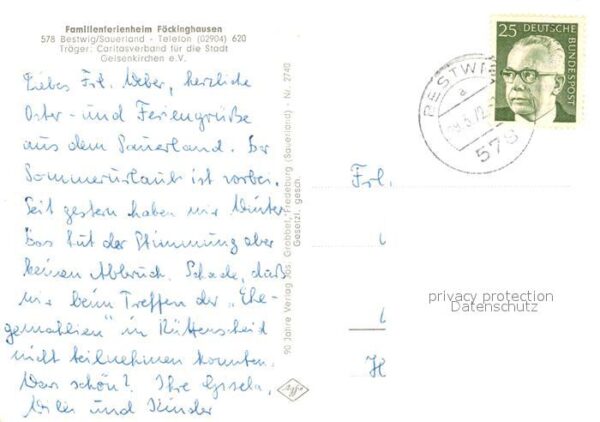 Familienferienheim Föckinghausen
578 Bestwig/Sauerland - Telefon (02904) 620
Träger: Caritasverband für die Stadt
Gelsenkirchen e.V.
Liebes Frl. Weber, herzliche
Oster- und Feriengrüße
aus dem Sauerland. Der
Sommerurlaub ist vorbei.
Seit gestern haben wir Winter
Das tut der Stimmung aber
keinen Abbruch. Schade, daß
wir beim Treffen der „Ehe-
gemahlien" in Rüttenscheid
nicht teilnehmen konnten.
War's schön? Ihre Gisela,
und Kinder
90 Jahre Verlag Jos. Grobbel, Fredeburg (Sauerland) - Nr. 2740
Gesetzl. gesch.
25 DEUTSCHE
BUNDESPOST
BESTWIG
a
578
Frl.
privacy protection
Datenschutz